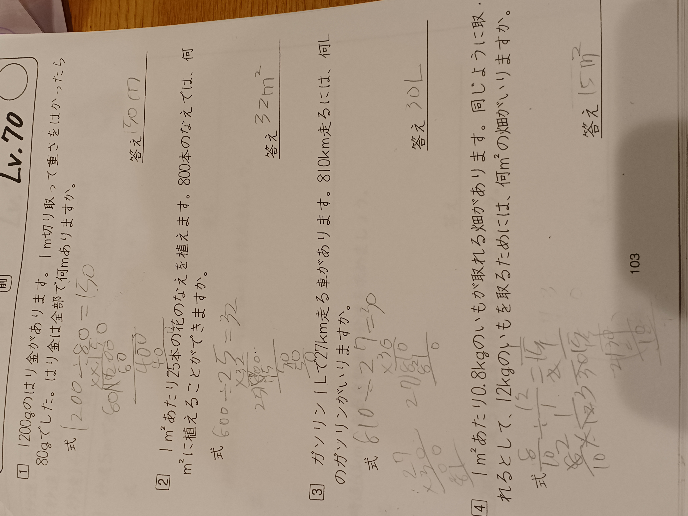 Lv.70
1 1200gのはり金があります。1m切り取って重さをはかったら
80gでした。はり金は全部で何mありますか。
式 1200÷80=150
答え 150m
2 1m²あたり25本の花のなえを植えます。800本のなえでは、何
m²に植えることができますか。
式 800÷25=32
答え 32m²
3 ガソリン1Lで27km走る車があります。810km走るには、何L
のガソリンがいりますか。
式 810÷27=30
答え 30L
4 1m²あたり0.8kgのいもが取れる畑があります。同じように取
れるとして、12kgのいもを取るためには、何m²の畑がいりますか。
式
答え 15m²
103